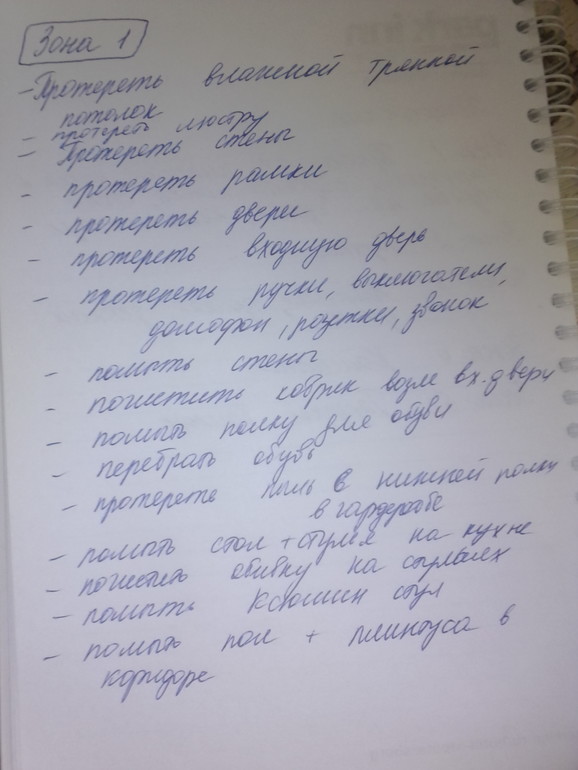 Зона 1
- Протереть влажной тряпкой
потолок
- протереть люстру
- Протереть стены
- протереть рамки
- протереть двери
- протереть входную дверь
- протереть ручки, выключатели,
домофон, розетки, звонок
- помыть стены
- почистить коврик возле вх. двери
- помыть полку для обуви
- перебрать обувь
- протереть пыль в нижней полке
в гардеробе
- помыть стол + стулья на кухне
- почистить обивку на стульях
- помыть Ксюшин стул
- помыть пол + плинтуса в
коридоре